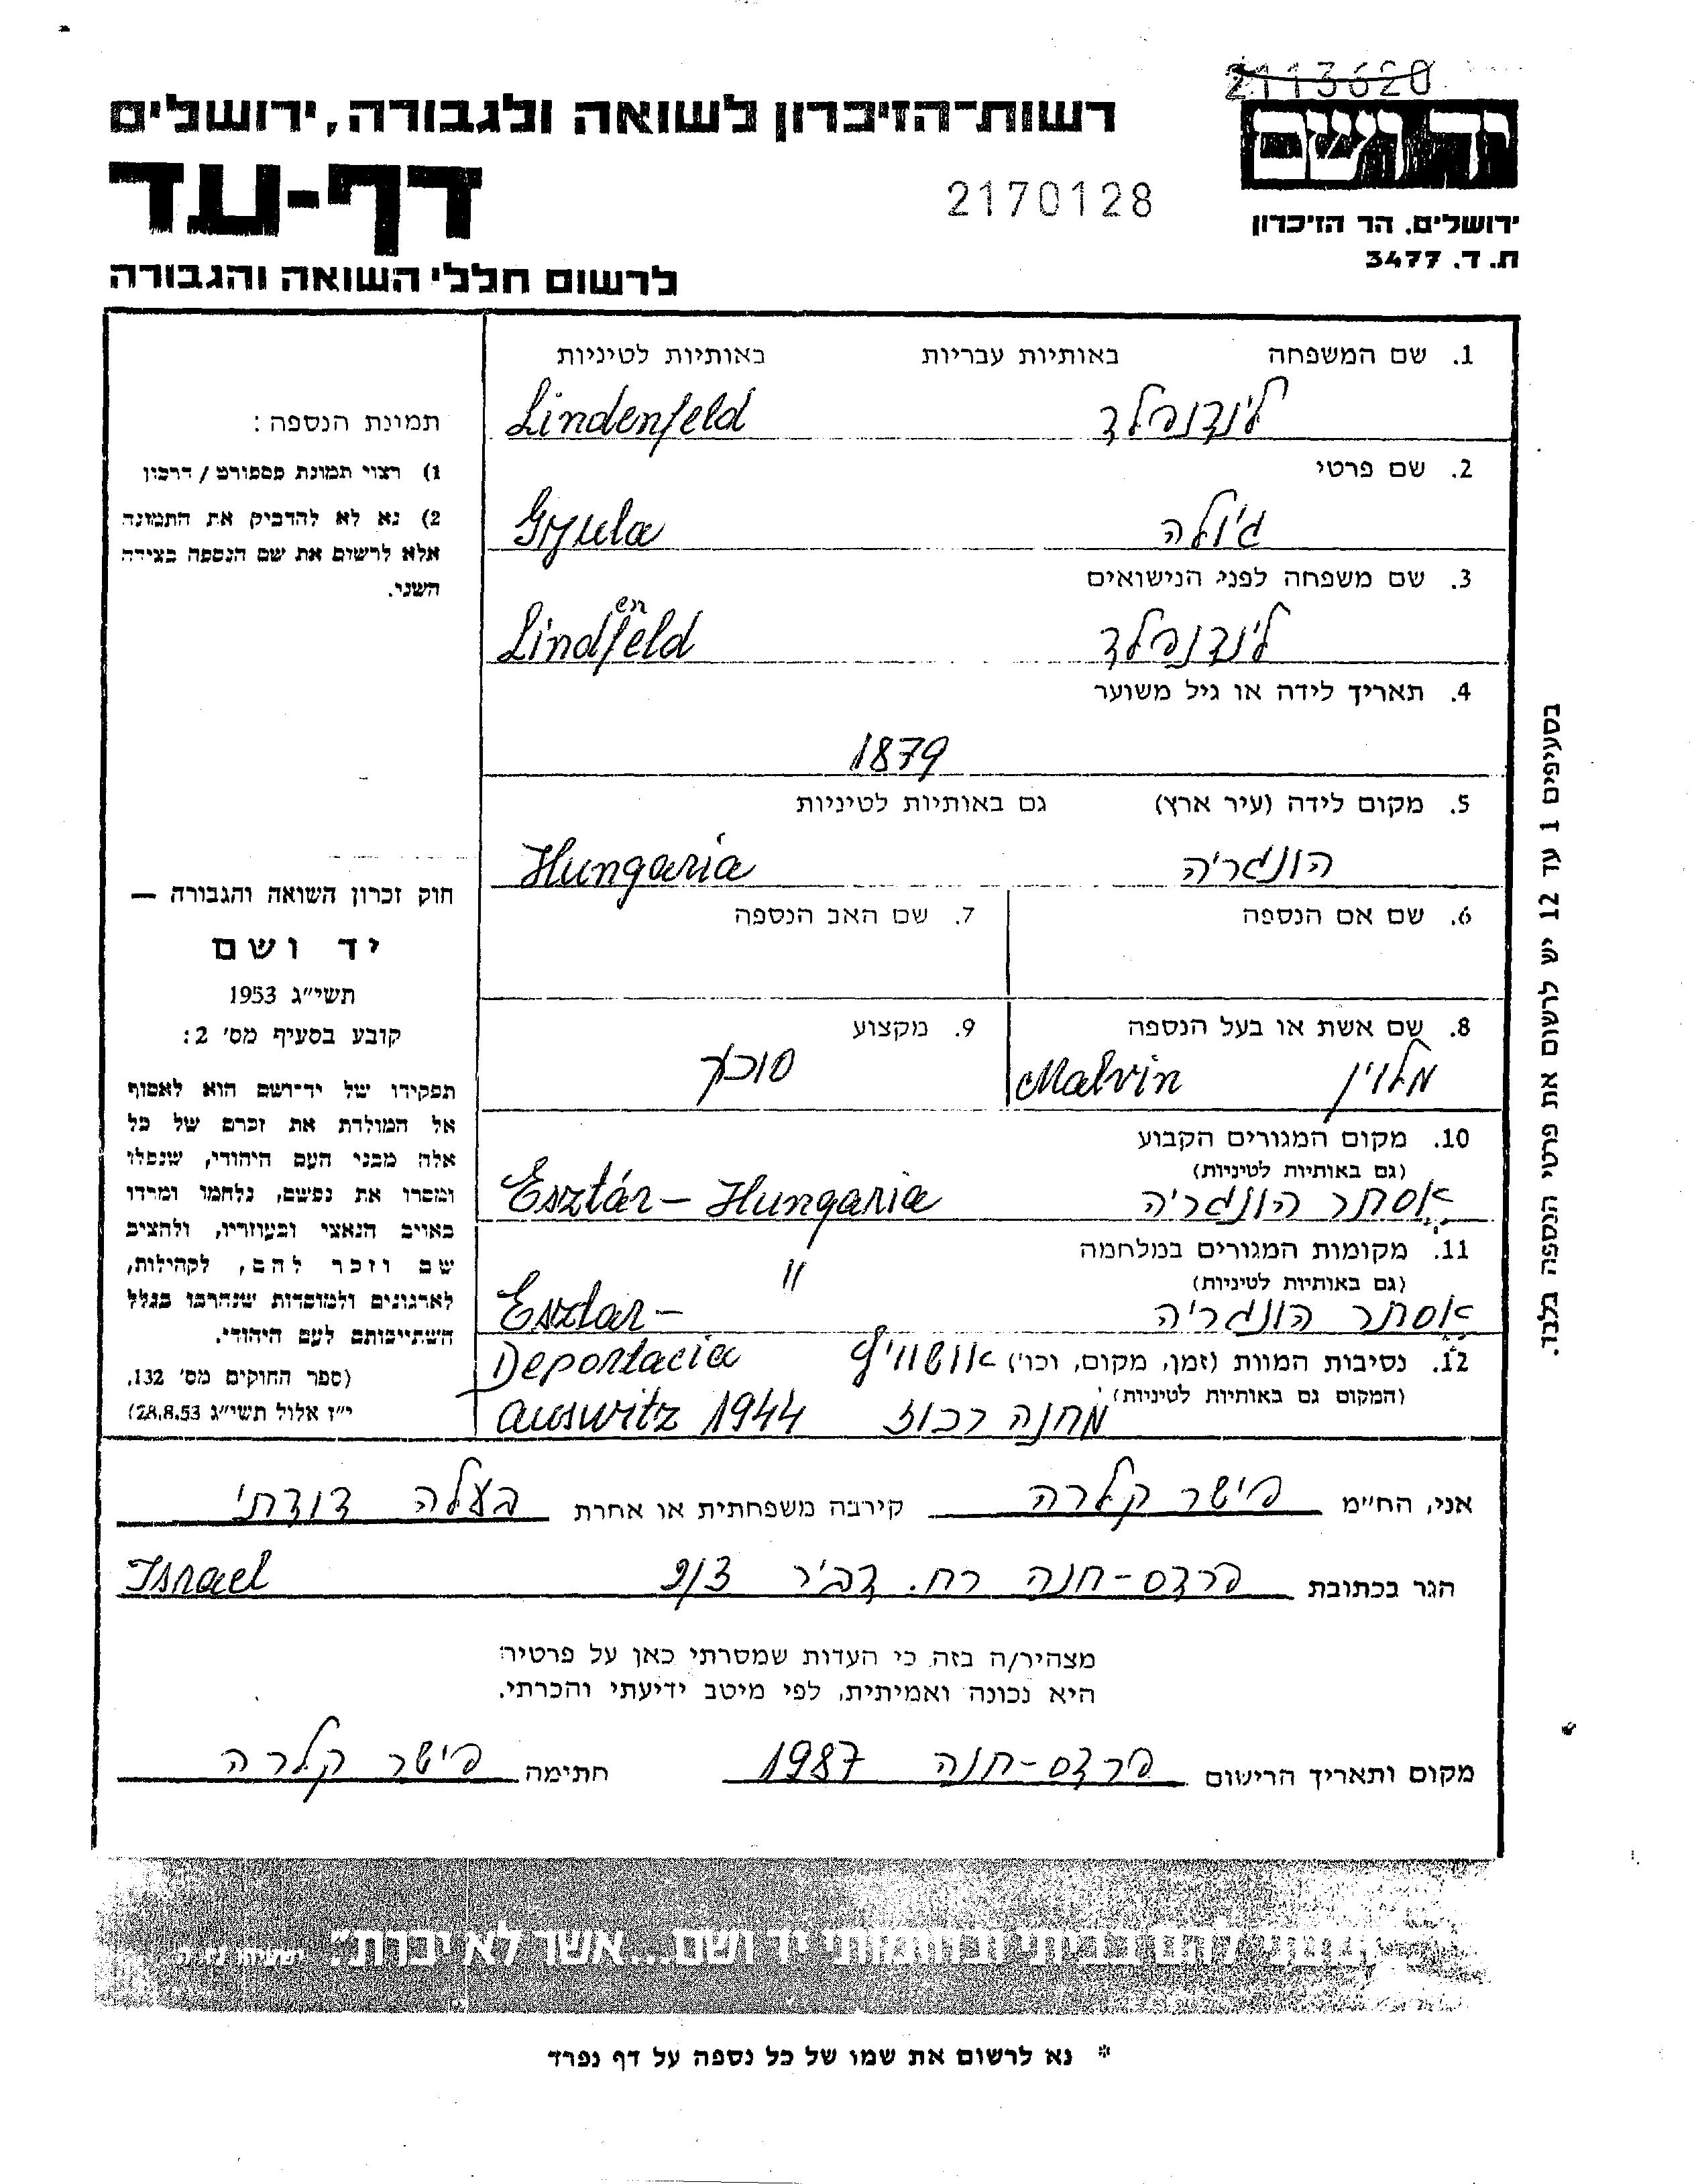 2113620
יד ושם
רשות־הזיכרון לשואה ולגבורה, ירושלים
דף-עד
2170128
ירושלים, הר הזיכרון
ת. ד. 3477
לרשום חללי השואה והגבורה
1. שם המשפחה באותיות עבריות באותיות לטיניות
לינדנפלד Lindenfeld
2. שם פרטי
ג'ולה Gyula
3. שם משפחה לפני הנישואים
en
לינדנפלד Lindfeld
4. תאריך לידה או גיל משוער
1879
5. מקום לידה (עיר ארץ) גם באותיות לטיניות
הונגריה Hungaria
6. שם אם הנספה 7. שם האב הנספה
8. שם אשת או בעל הנספה 9. מקצוע
מלוין Malvin סוכן
10. מקום המגורים הקבוע
(גם באותיות לטיניות)
אסתר הונגריה Esztár – Hungaria
11. מקומות המגורים במלחמה
(גם באותיות לטיניות)
אסתר הונגריה Esztar – "
12. נסיבות המוות (זמן, מקום, וכו') אושוויץ Deportacia
(המקום גם באותיות לטיניות) מחנה רכוז Auswitz 1944
תמונת הנספה:
1) רצוי תמונת פספורט / דרכון
2) נא לא להדביק את התמונה
אלא לרשום את שם הנספה בצידה
השני.
חוק זכרון השואה והגבורה —
יד ושם
תשי"ג 1953
קובע בסעיף מס' 2:
תפקידו של יד־ושם הוא לאסוף
אל המולדת את זכרם של כל
אלה מבני העם היהודי, שנפלו
ומסרו את נפשם, נלחמו ומרדו
באויב הנאצי ובעוזריו, ולהציב
שם וזכר להם, לקהילות,
לארגונים ולמוסדות שנחרבו בגלל
השתייכותם לעם היהודי.
(ספר החוקים מס' 132,
י"ז אלול תשי"ג 28.8.53)
בסעיפים 1 עד 12 יש לרשום את פרטי הנספה בלבד.
אני, הח"מ פישר קלרה קירבה משפחתית או אחרת בעלה דודתי
הגר בכתובת פרדס-חנה רח. דביר Israel
מצהיר/ה בזה כי העדות שמסרתי כאן על פרטיה
היא נכונה ואמיתית, לפי מיטב ידיעתי והכרתי.
מקום ותאריך הרישום פרדס-חנה 1987 חתימה פישר קלרה
ונתתי להם בביתי ובחומותי יד ושם...אשר לא יכרת". ישעיהו נו, ה
* נא לרשום את שמו של כל נספה על דף נפרד